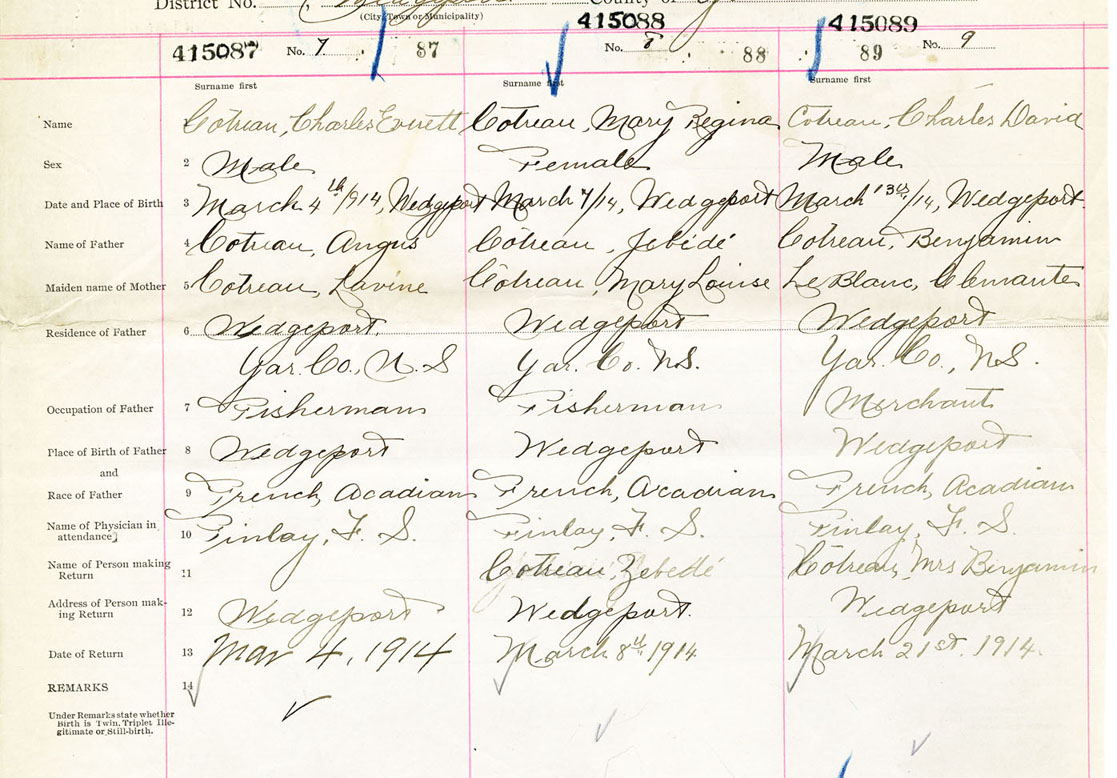 District No. County of
(City, Town or Municipality)
415087 No. 7 87
415088 No. 8 88
415089 89 No. 9
Surname first Surname first Surname first
Name Cotreau, Charles Everett Cotreau, Mary Regina Cotreau, Charles David
Sex 2 Male Female Male
Date and Place of Birth 3 March 4th/914, Wedgeport March 7/14, Wedgeport March 13th/14, Wedgeport.
Name of Father 4 Cotreau, Angus Cotreau, Jebédé Cotreau, Benjamin
Maiden name of Mother 5 Cotreau, Lavine Cotreau, Mary Louise LeBlanc, Clemante
Residence of Father 6 Wedgeport Wedgeport Wedgeport
Yar. Co., N.S Yar. Co. N.S. Yar. Co., N.S.
Occupation of Father 7 Fisherman Fisherman Merchant
Place of Birth of Father 8 Wedgeport Wedgeport Wedgeport
and
Race of Father 9 French, Acadian French, Acadian French, Acadian
Name of Physician in
attendance 10 Finlay, F. S. Finlay, F. S. Finlay, F. S.
Name of Person making
Return 11 Cotreau, Zebedé Cotreau, Mrs Benjamin
Address of Person mak-
ing Return 12 Wedgeport Wedgeport. Wedgeport
Date of Return 13 Mar 4, 1914 March 8th 1914 March 21st. 1914.
REMARKS 14
Under Remarks state whether
Birth is Twin, Triplet Ille-
gitimate or Still-birth.